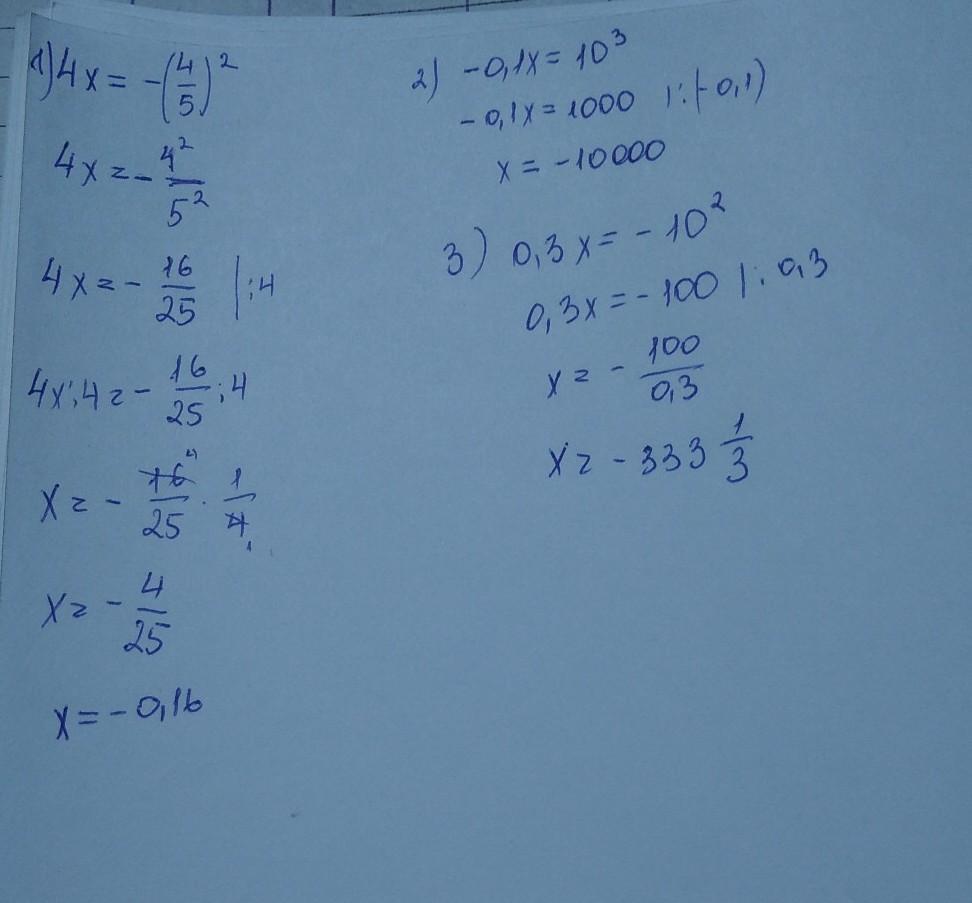 1) 4x = -(4/5)²
4x = - 4²/5²
4x = - 16/25 |:4
4x:4 = - 16/25 :4
x = - 16/25 · 1/4
x = - 4/25
x = -0,16
2) -0,1x = 10³
-0,1x = 1000 |:(-0,1)
x = -10000
3) 0,3x = -10²
0,3x = -100 |:0,3
x = - 100/0,3
x = -333 1/3